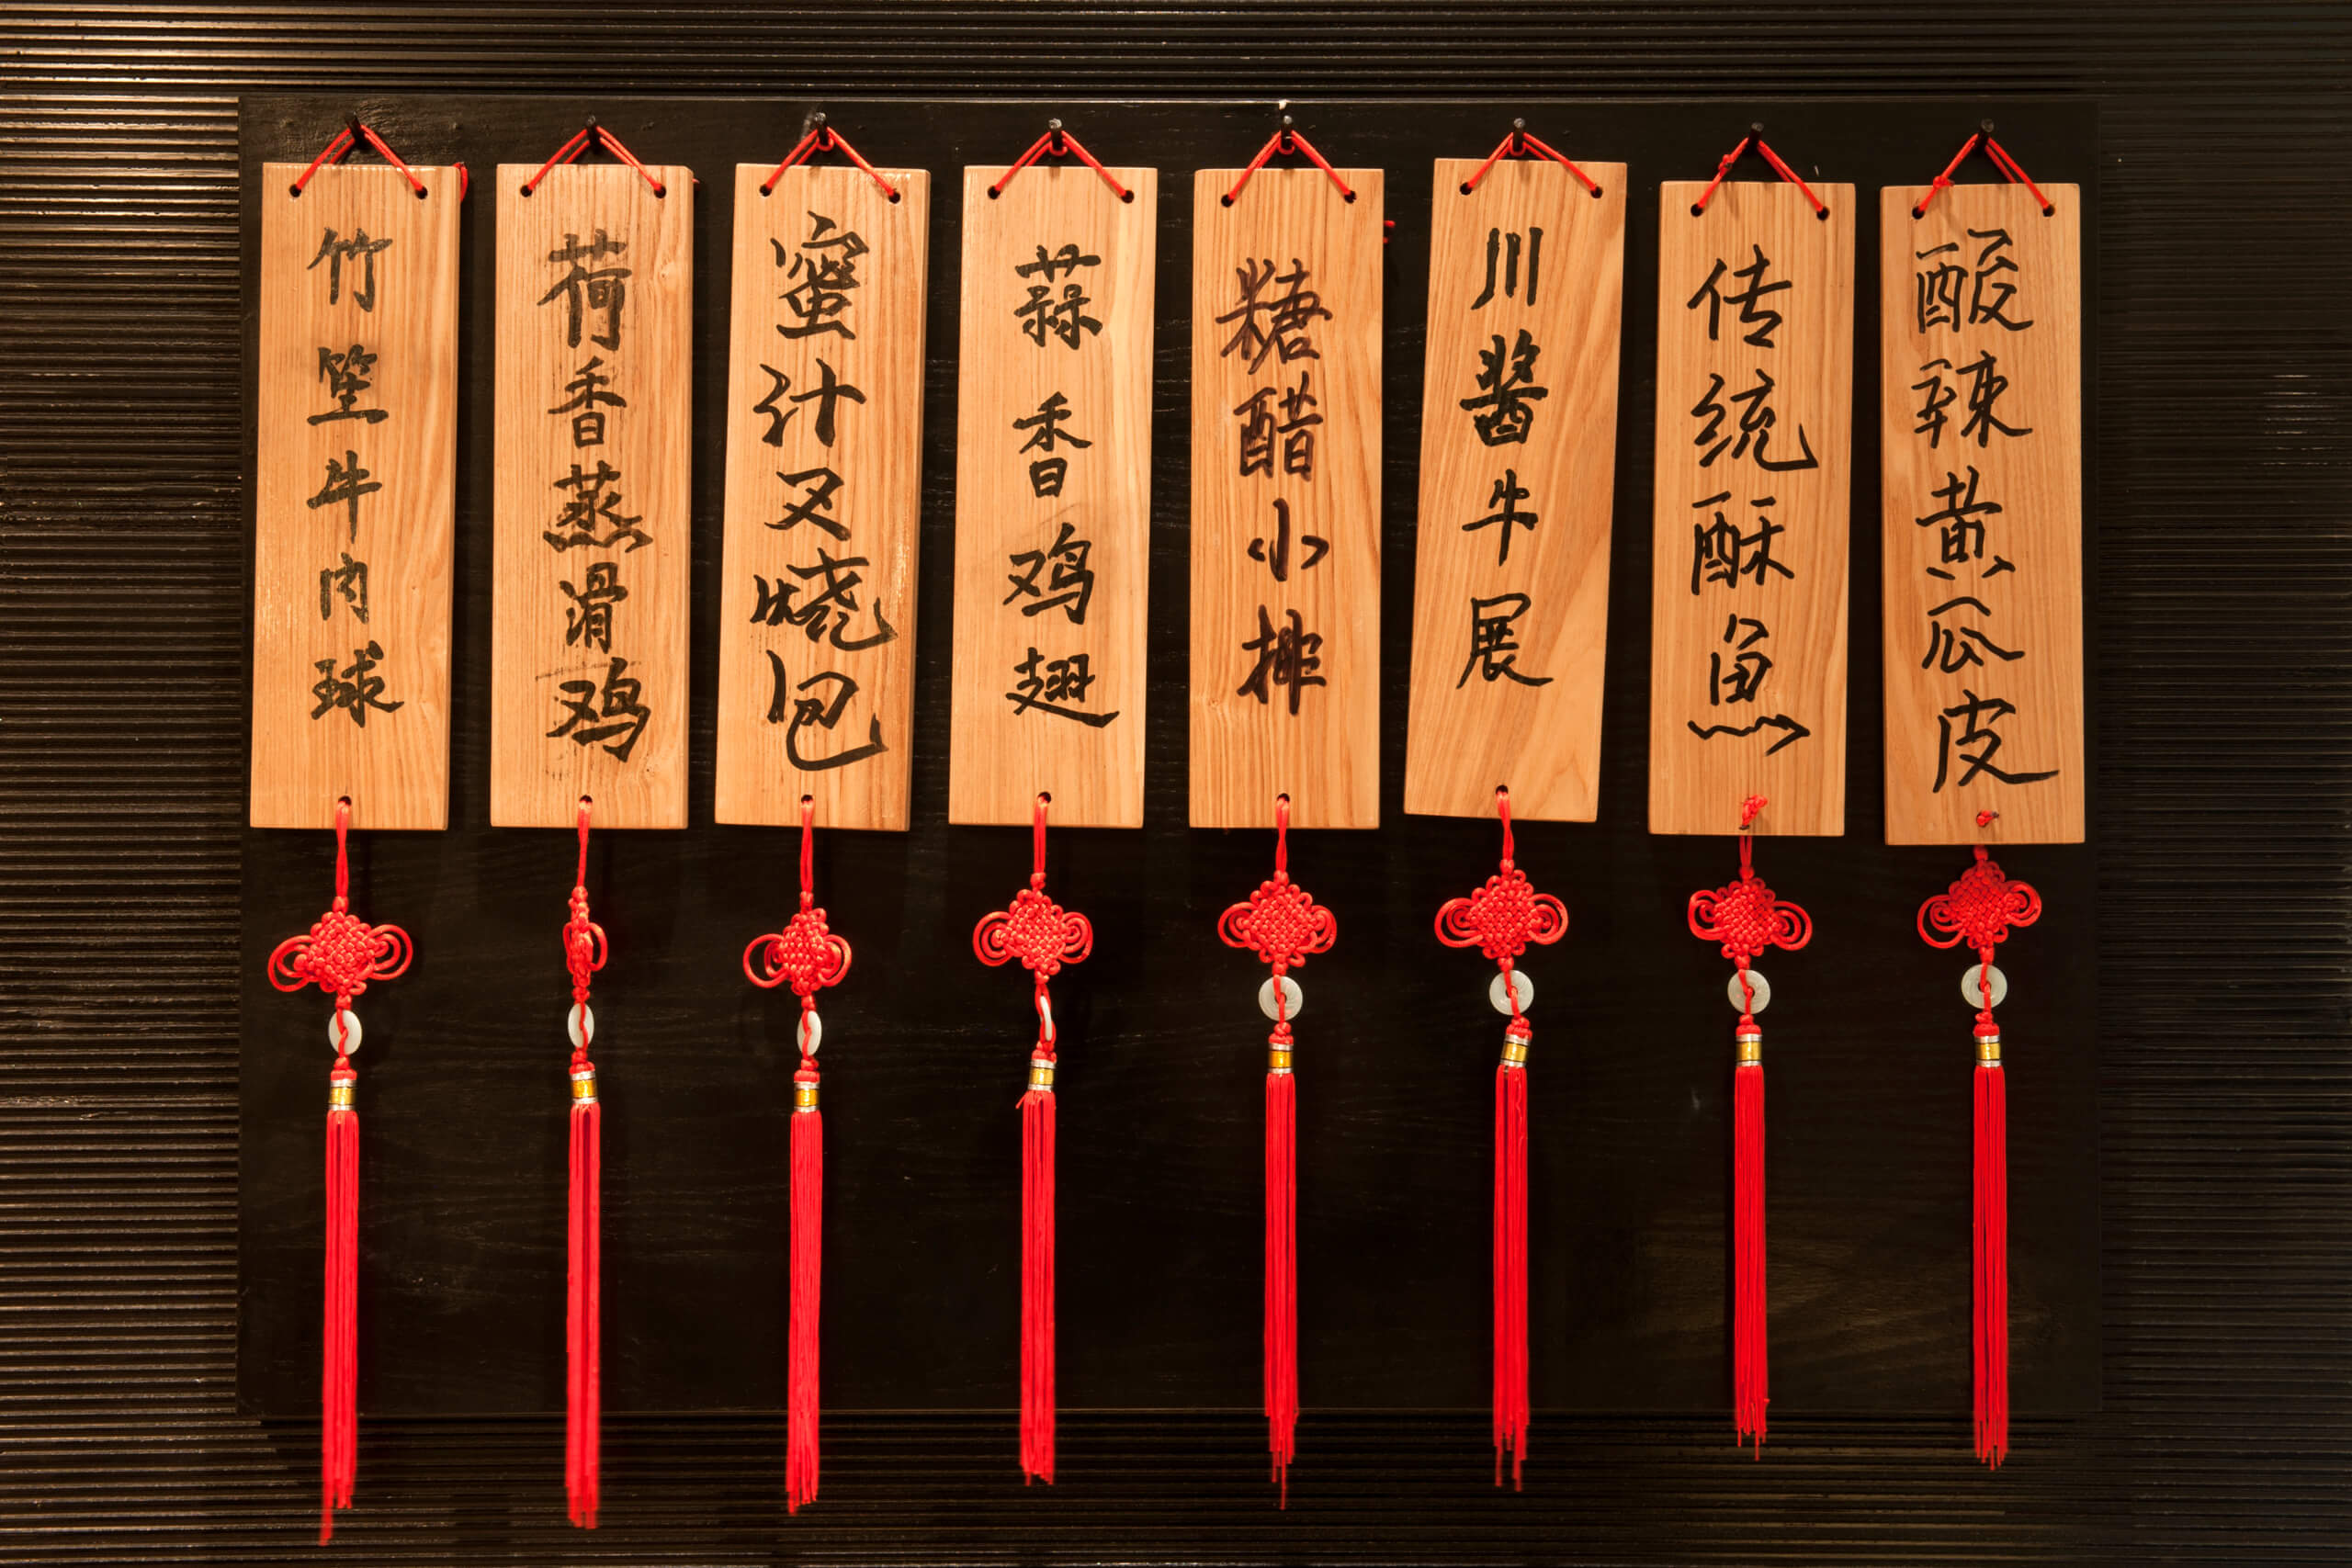 竹笙牛肉球
荷香蒸滑鸡
蜜汁叉烧包
蒜香鸡翅
糖醋小排
川酱牛展
传统酥鱼
酸辣黄瓜皮